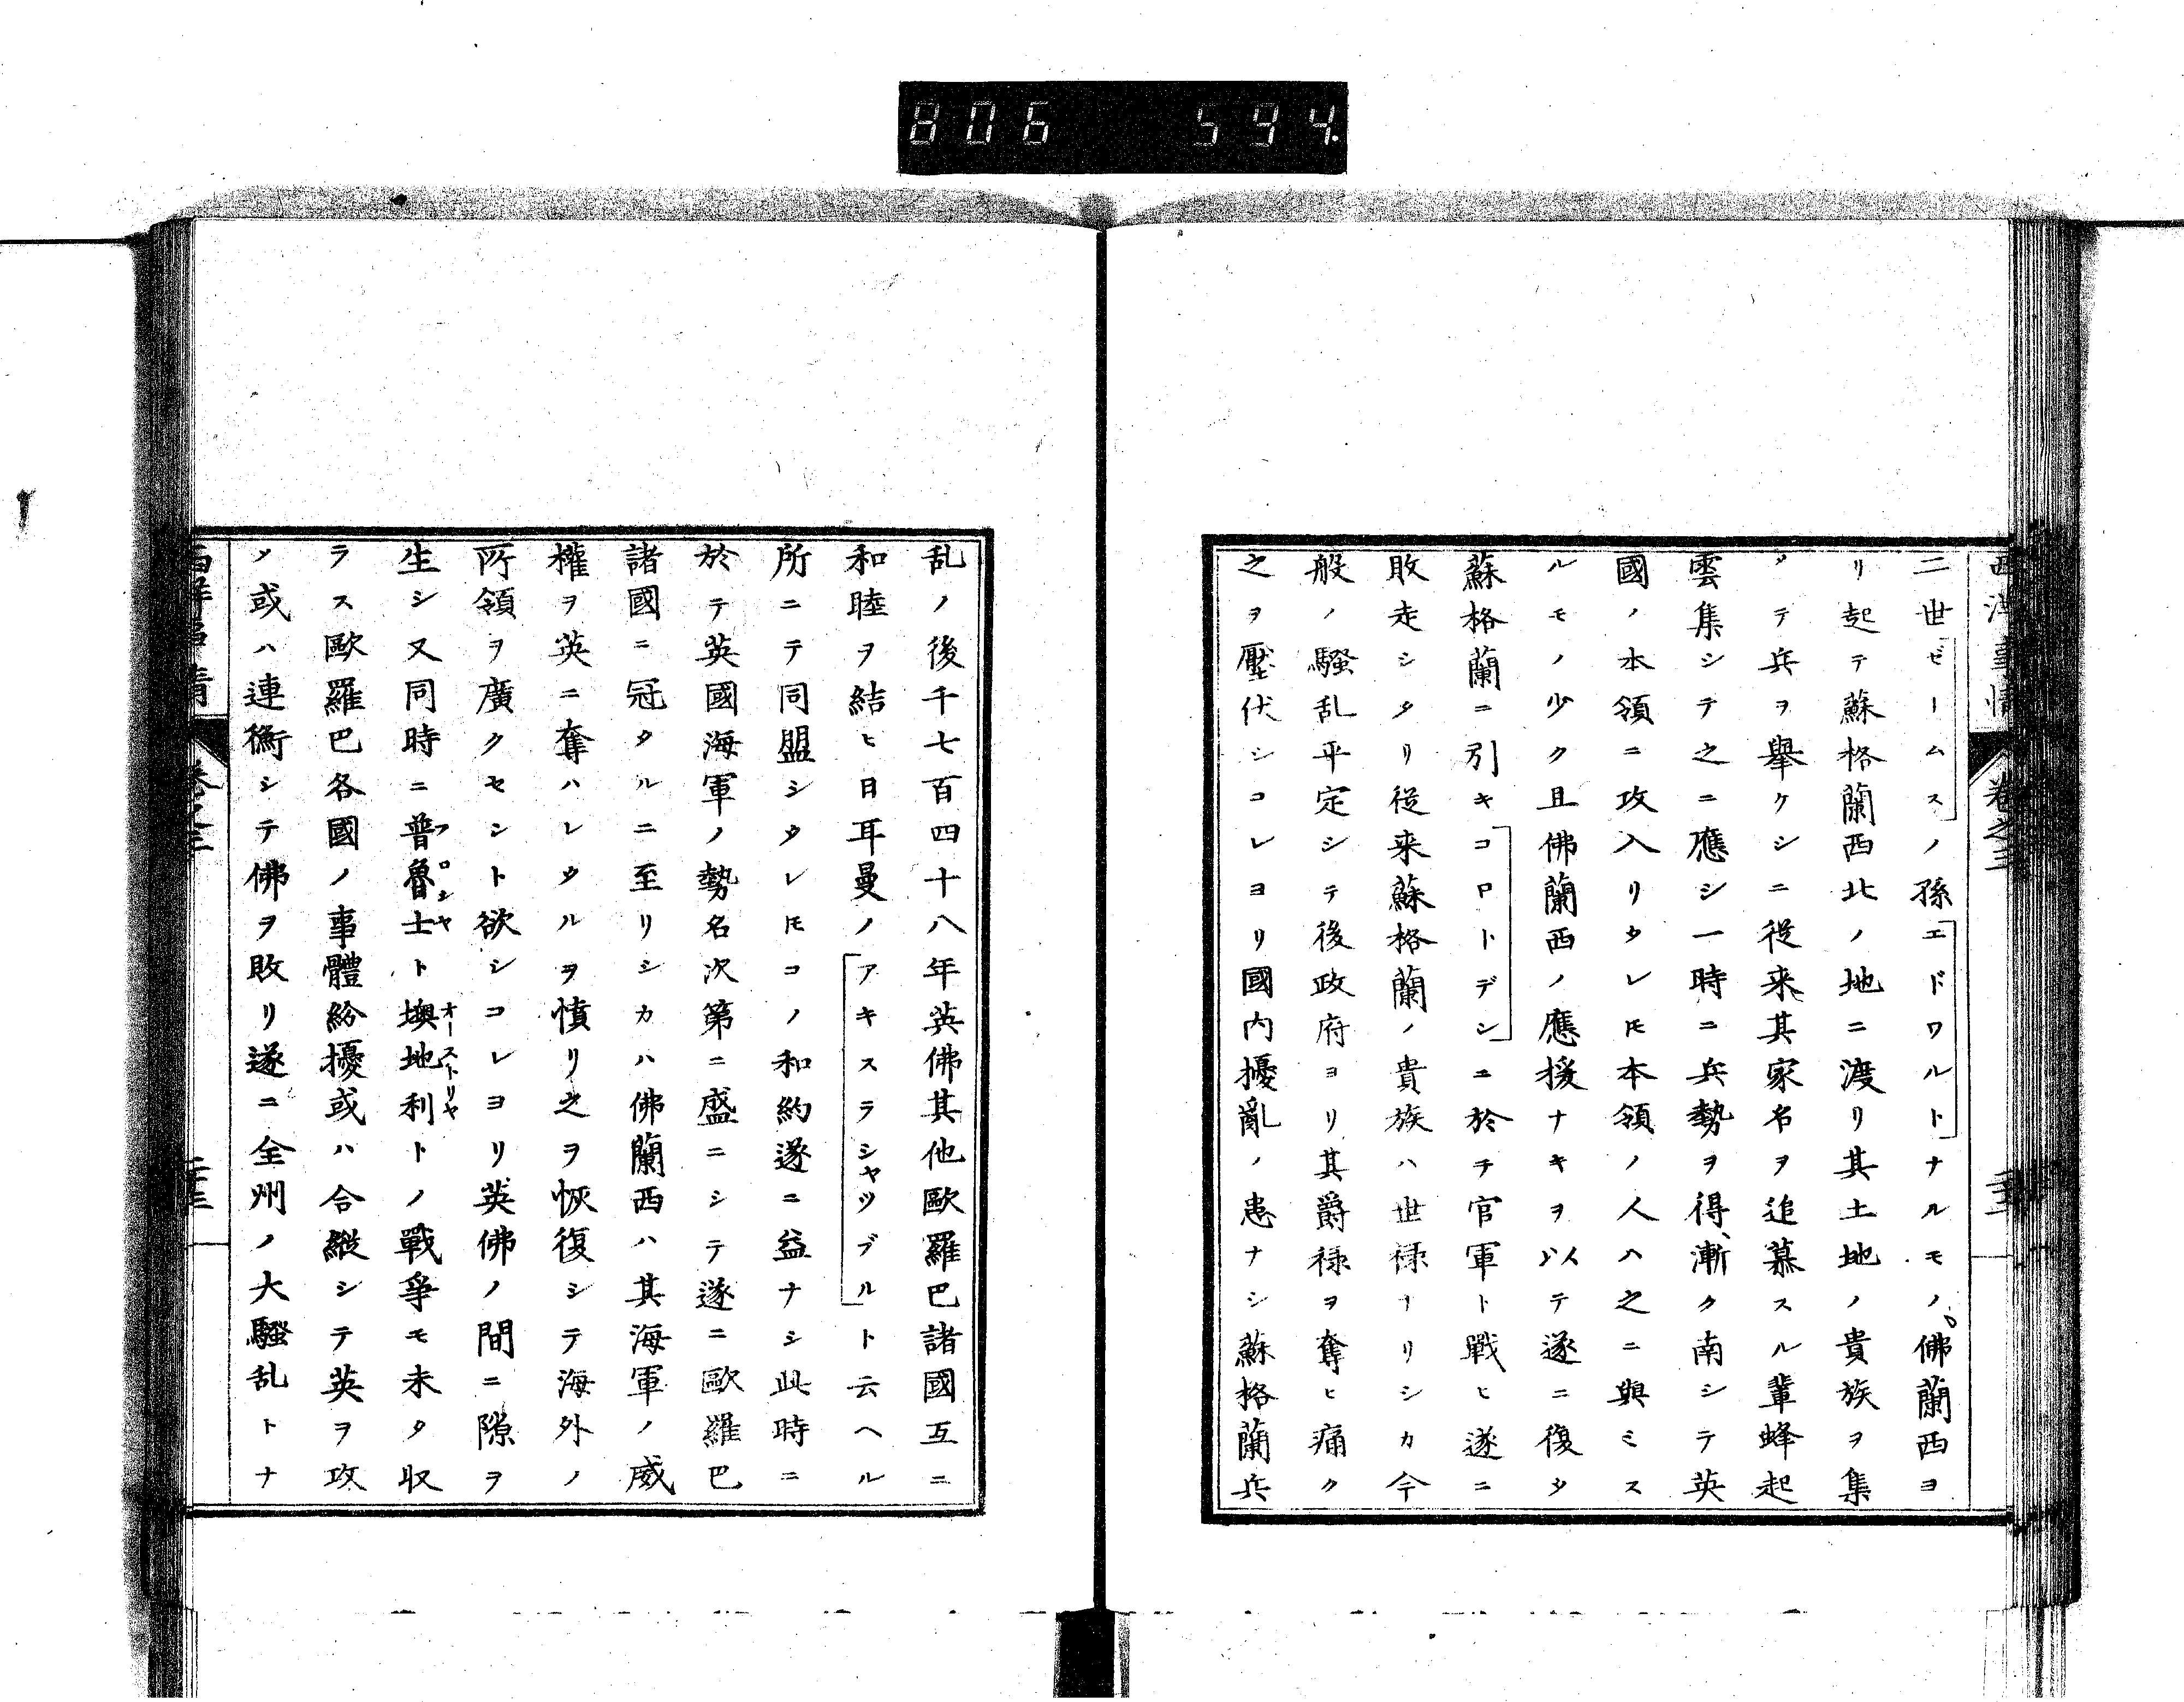 806 594.
西洋事情 巻之三
二世「ゼームス」ノ孫「エドワルト」ナルモノ、佛蘭西ヨ
リ起テ蘇格蘭西北ノ地ニ渡リ其土地ノ貴族ヲ集
メテ兵ヲ舉ケシニ従来其家名ヲ追慕スル輩蜂起
雲集シテ之ニ應シ一時ニ兵勢ヲ得、漸ク南シテ英
國ノ本領ニ攻入リタレ𪜈本領ノ人ハ之ニ與ミス
ルモノ少ク且佛蘭西ノ應援ナキヲ以テ遂ニ復タ
蘇格蘭ニ引キ「コロトデン」ニ於テ官軍ト戰ヒ遂ニ
敗走シタリ従来蘇格蘭ノ貴族ハ世禄ナリシカ今
般ノ騷乱平定シテ後政府ヨリ其爵禄ヲ奪ヒ痛ク
之ヲ壓伏シコレヨリ國内擾亂ノ患ナシ蘇格蘭兵
乱ノ後千七百四十八年英佛其他歐羅巴諸國互ニ
和睦ヲ結ヒ日耳曼ノ「アキスラシャツブル」ト云ヘル
所ニテ同盟シタレ𪜈コノ和約遂ニ益ナシ此時ニ
於テ英國海軍ノ勢名次第ニ盛ニシテ遂ニ歐羅巴
諸國ニ冠タルニ至リシカハ佛蘭西ハ其海軍ノ威
權ヲ英ニ奪ハレタルヲ憤リ之ヲ恢復シテ海外ノ
所領ヲ廣クセント欲シコレヨリ英佛ノ間ニ隙ヲ
生シ又同時ニ普魯士フロシヤト墺地利オーストリヤトノ戰爭モ未タ収
ラス歐羅巴各國ノ事體紛擾或ハ合縦シテ英ヲ攻
ノ或ハ連衡シテ佛ヲ敗リ遂ニ全州ノ大騷乱トナ
西洋事情 巻之三